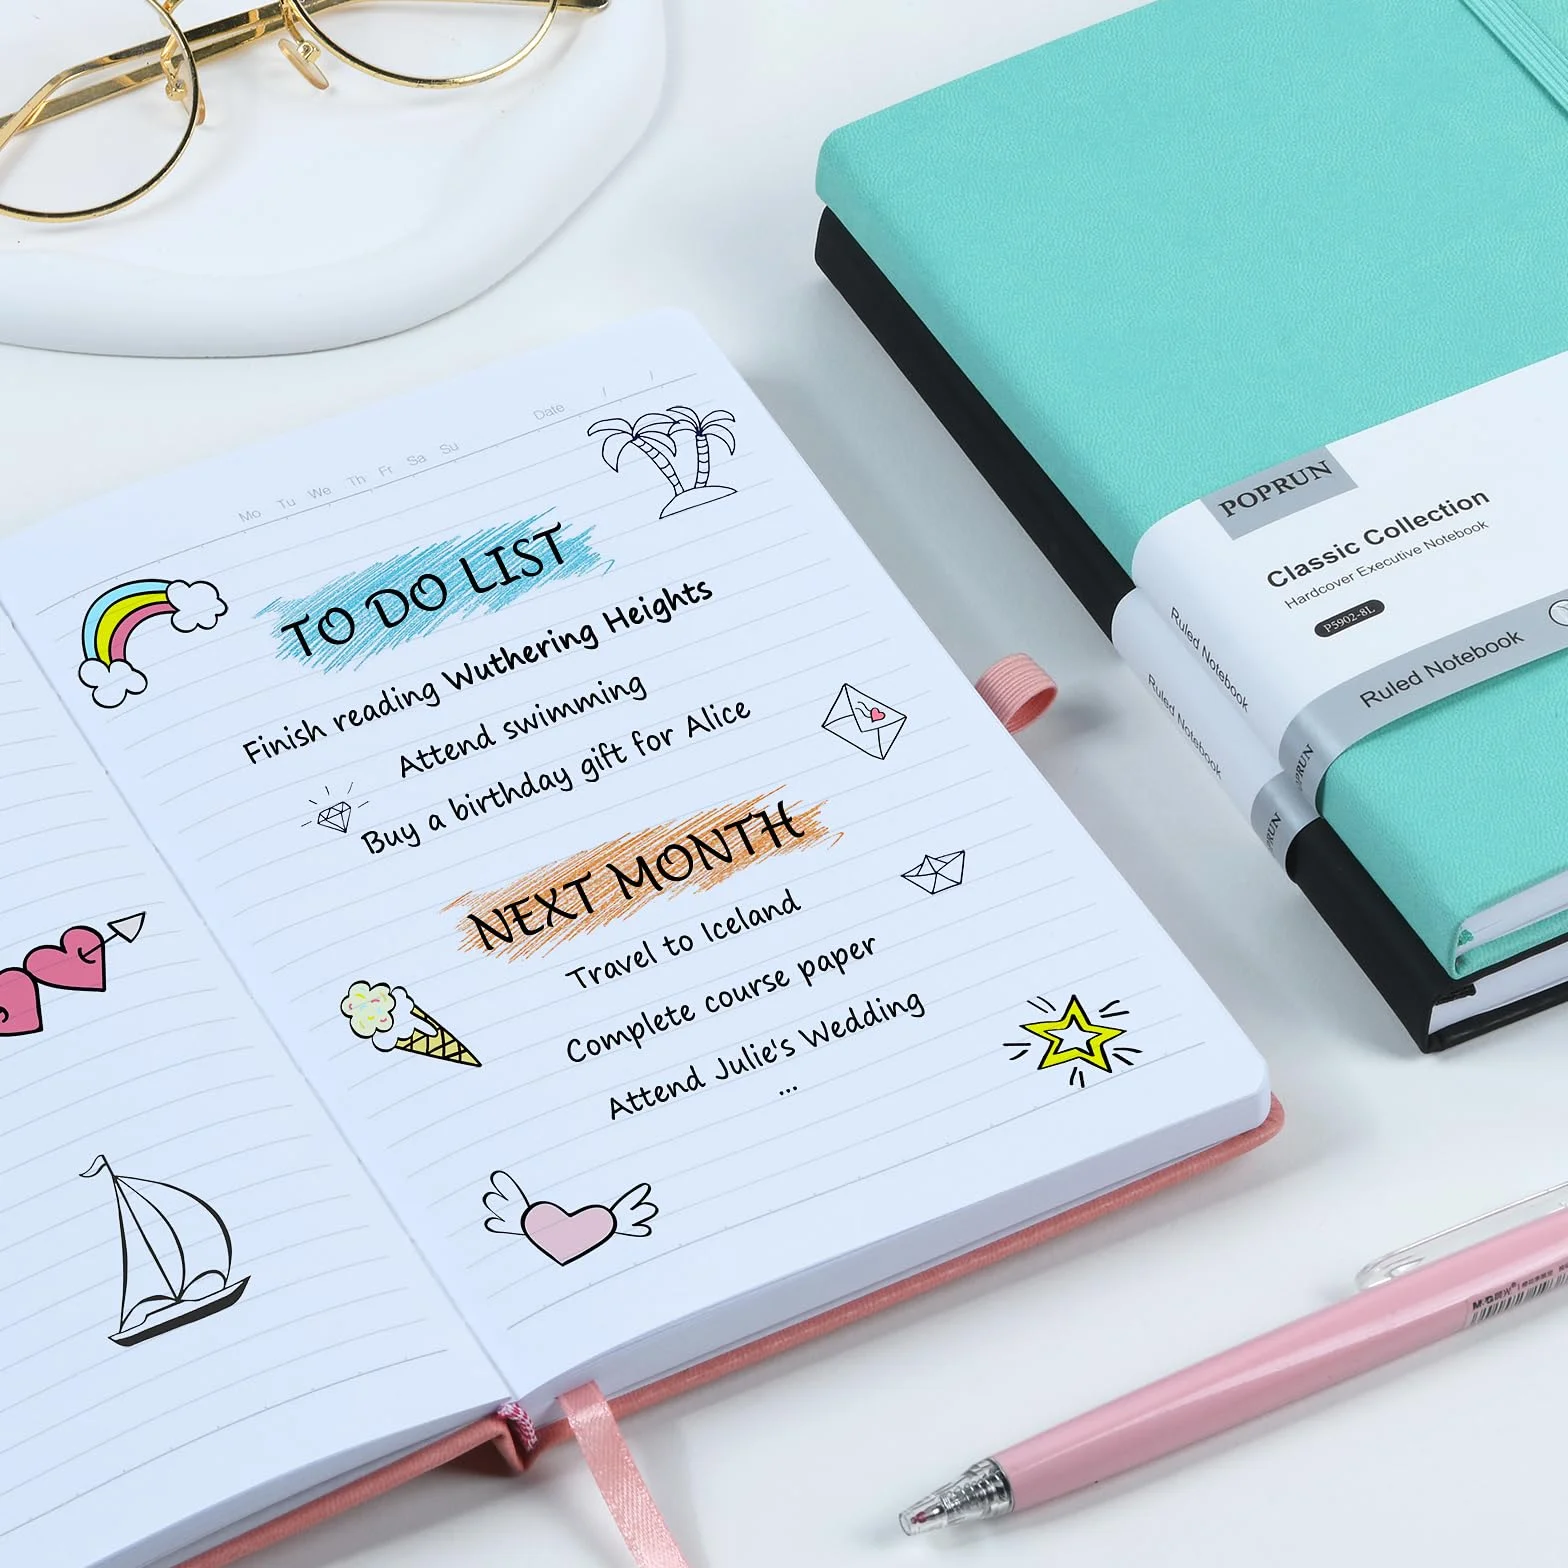 Mo Tu We Th Fr Sa Su
Date / /
TO DO LIST
Finish reading Wuthering Heights
Attend swimming
Buy a birthday gift for Alice
NEXT MONTH
Travel to Iceland
Complete course paper
Attend Julie's Wedding
...
POPRUN
Classic Collection
Hardcover Executive Notebook
P5902-8L
Ruled Notebook
Ruled Notebook
POPRUN
Ruled Notebook
PRUN
M&G